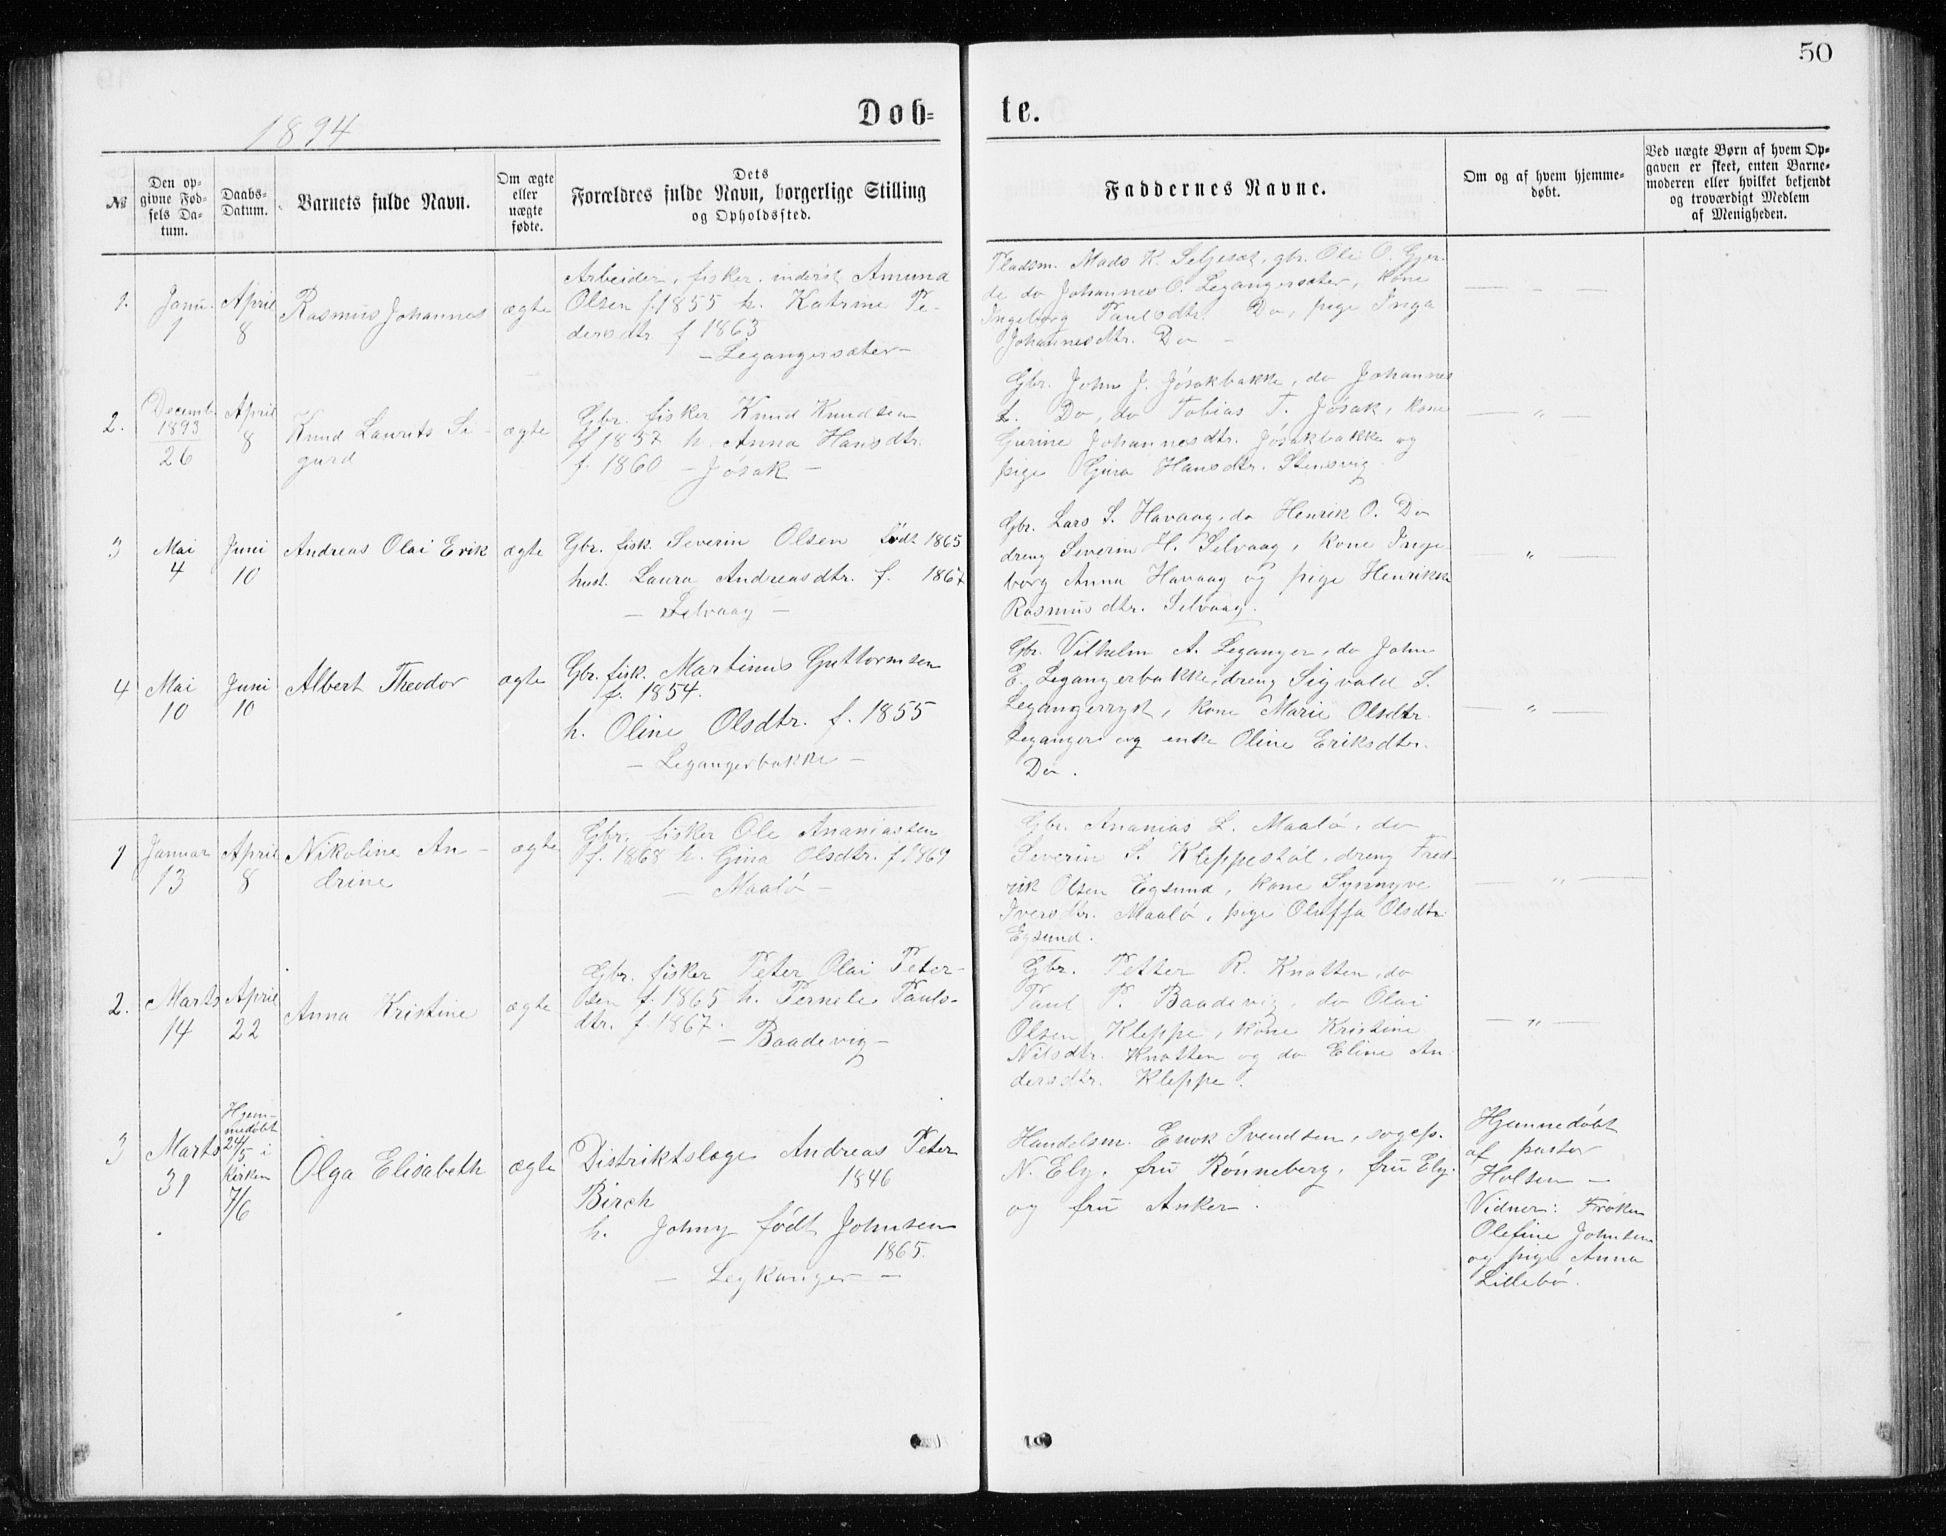 50
Döb-
te.
1894
№
Den op-
givne Fød-
sels Da-
tum.
Daabs-
Datum.
Barnets fulde Navn.
Om ægte
eller
nægte
fødte.
Dets
Forældres fulde Navn, borgerlige Stilling
og Opholdssted.
Faddernes Navne.
Om og af hvem hjemme-
døbt.
Ved nægte Børn af hvem Op-
gaven er skeet, enten Barne-
moderen eller hvilket bekjendt
og troværdigt Medlem
af Menigheden.
1.
Janu.
1
April
8
Rasmus Johannes
ægte
Arbeider, fisker, inderst Amund
Olsen f. 1855 h. Katrine Pe-
dersdtr. f 1863
- Legangersæter -
Pladsm. Mads K. Seljeset, gbr. Ole O. Gjer-
de do Johannes O. Legangersæter, kone
Ingeborg Paulsdtr. Do, pige Inga
Johannesdtr. Do -
2.
Decemb.
1893
26
April
8
Knud Laurits Si-
gurd
ægte
Gbr. fisker Knud Knudsen
f. 1857 h. Anna Hansdtr.
f. 1860 - Jøsak -
Gbr. John J. Jøsakbakke, do Johannes
L. Do, do Tobias T. Jøsak, kone
Gurine Johannesdtr. Jøsakbakke og
pige Gjina Hansdtr. Stensvig
- " -
3
Mai
4
Juni
10
Andreas Olai Erik
ægte
Gbr. fisk. Severin Olsen født 1865
hust. Laura Andreasdtr. f. 1867
- Selvaag -
Gbr. Lars S. Havaag, do Henrik O. Do
dreng Severin H. Selvaag, kone Inge
borg Anna Havaag og pige Henrikke
Rasmusdtr. Selvaag.
- " -
4
Mai
10
Juni
10
Albert Theodor
ægte
Gbr. fisk. Martinus Guttormsen
f. 1854.
h. Oline Olsdtr. f. 1855
- Legangerbakke -
Gbr. Vilhelm A. Leganger, do John
E. Legangerbakke, dreng Sigvald S.
Legangerryst, kone Marie Olsdtr.
Leganger og enke Oline Eriksdtr.
Do.
- " -
1
Januar
13
April
8
Nikoline An-
drine
ægte
Gbr. fisker Ole Ananiassen
f. 1868 h. Gina Olsdtr. f. 1869
- Maalø -
Gbr. Ananias L. Maalø, do
Severin S. Kleppestøl, dreng Fred-
rik Olsen Egsund, kone Synnyve
Iversdtr. Maalø, pige Oluffa Olsdtr
Egsund.
- " -
2.
Marts
14
April
22
Anna Kristine
ægte
Gbr. fisker Peter Olai Peter-
sen f. 1865 h. Pernele Pauls-
dtr. f. 1867.
- Baadevig -
Gbr. Petter R. Knotten, do
Paul P. Baadevig, do Olai
Olsen Kleppe, kone Kristine
Nilsdtr. Knotten og do Eline An
dersdtr. Kleppe.
- " -
3
Marts
31
Hjem-
medøbt
24/5 i
Kirken
7/6
Olga Elisabeth
ægte
Distriktslæge Andreas Peter
1846
Birch
h. Johny født Johnsen
1865.
- Leykanger -
Handelsm. Enok Svendsen, sogep.
N. Ely. fru Rønneberg, fru Ely.
og fru Anker.
Hjemmedøbt
af pastor
Holsen -
Vidner: Frøken
Olefine Johnsen
og pige Anna
Lillebø.